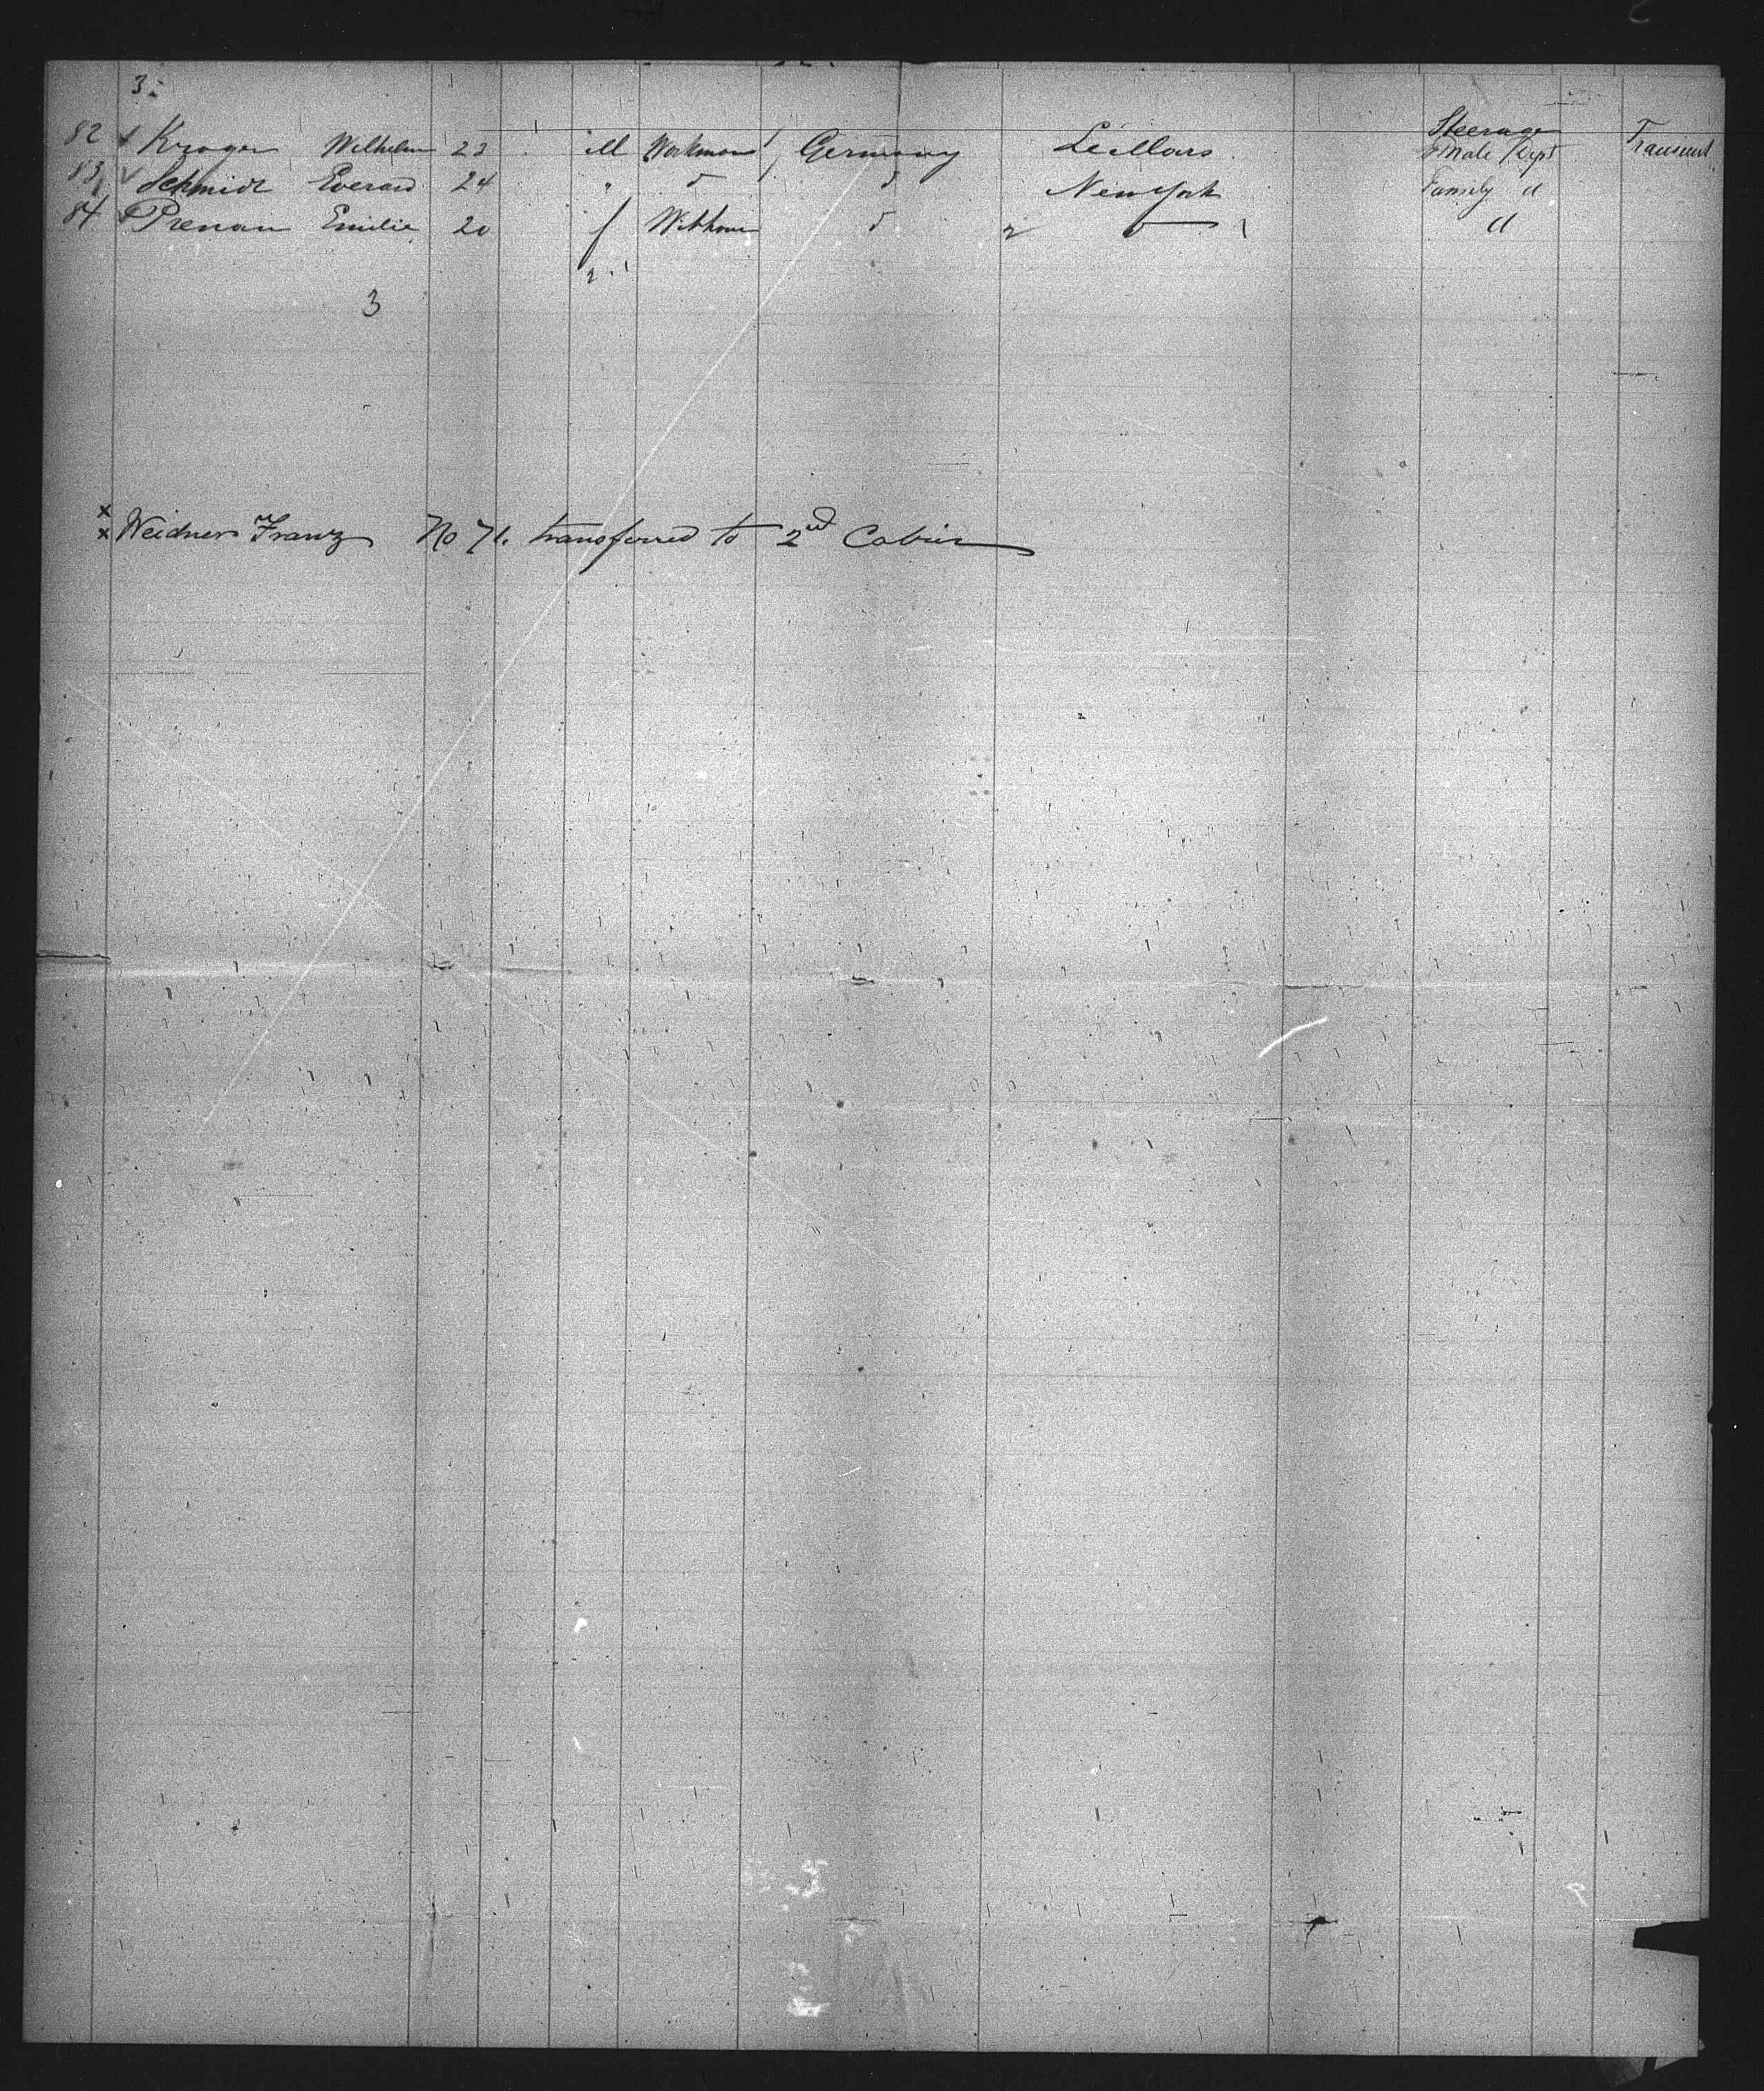 3.
82 Kruger Wilhelm 23 M Workman Germany Le Mars Steerage Male Cept Transient
83 Schmidt Everard 24 " d d New York Family d
84 Prenan Emilie 20 f Without d d
2 . 1
3
x
x Weidner Franz No 71. transferred to 2nd Cabin